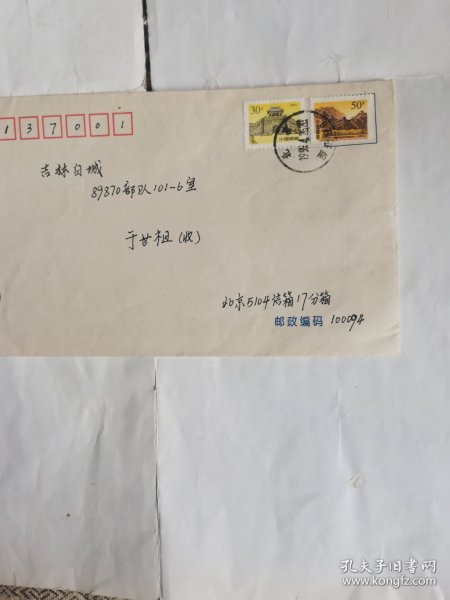 137001
30分
50分
吉林白城
89870部队101-6室
于世祖(收)
北京5104信箱17分箱
邮政编码 100094
孔夫子旧书网
www.kongfz.com